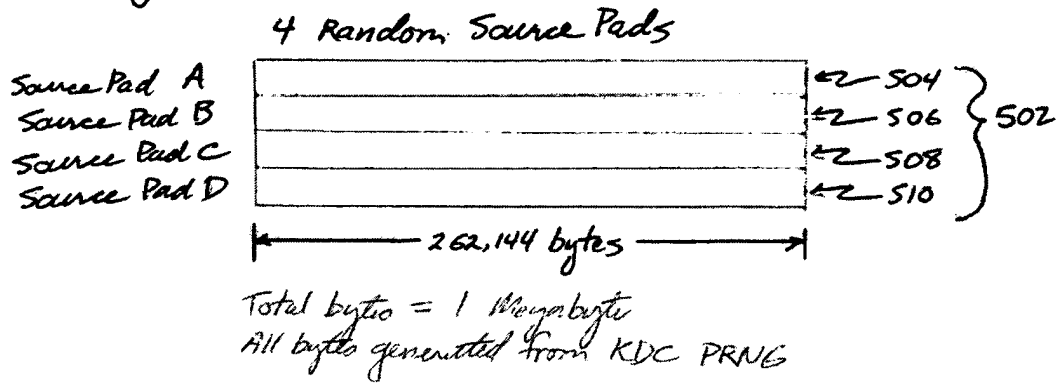 4 Random Source Pads
Source Pad A 504
Source Pad B 506 502
Source Pad C 508
Source Pad D 510
262,144 bytes
Total bytes = 1 Megabyte
All bytes generated from KDC PRNG